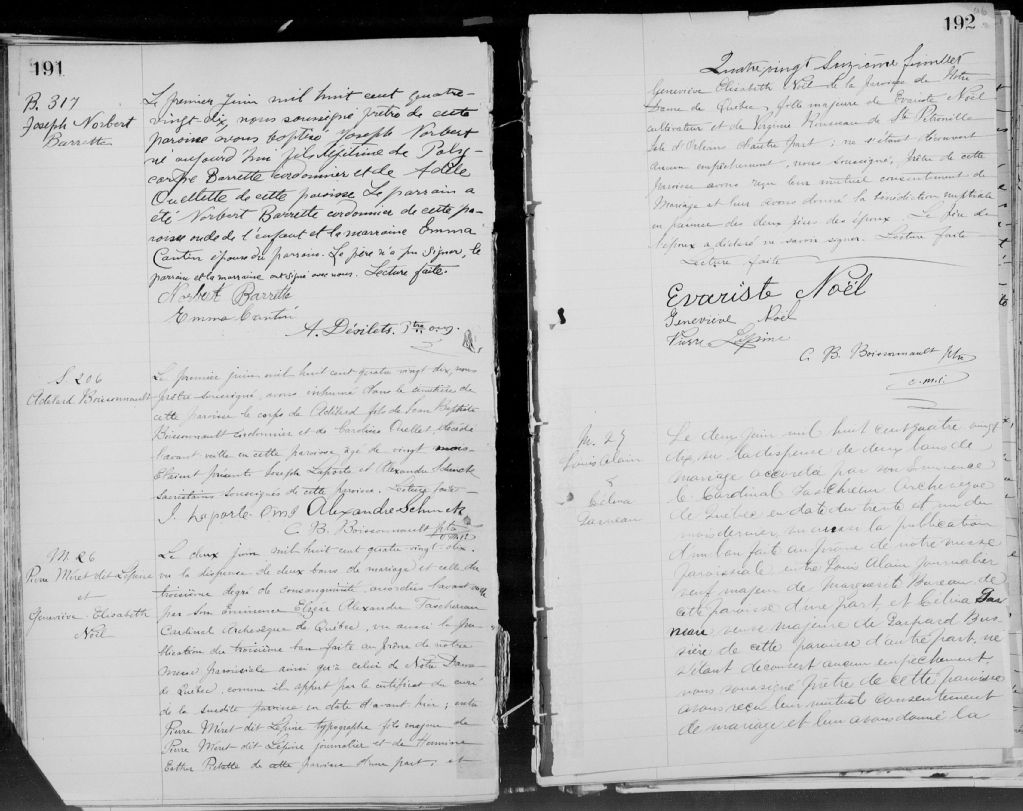 191
B. 317
Joseph Norbert
Barrette
Le premier juin mil huit cent quatre-
vingt-dix, nous soussigné prêtre de cette
paroisse avons baptisé Joseph Norbert
né aujourd'hui fils légitime de Poly-
carpe Barrette cordonnier et de Adèle
Ouellette de cette paroisse. Le parrain a
été Norbert Barrette cordonnier de cette pa-
roisse oncle de l'enfant et la marraine Emma
Cantin épouse du parrain. Le père n'a pu signer, le
parrain et la marraine ont signé avec nous. Lecture faite.
Norbert Barrette
Emma Cantin
A. Désilets, ptre
S. 206
Adélard Boissonnault
Le premier juin mil huit cent quatre vingt dix, nous
prêtre soussigné, avons inhumé dans le cimetière de
cette paroisse le corps de Adélard fils de Jean Baptiste
Boissonnault cordonnier et de Caroline Ouellet décédé
l'avant veille en cette paroisse âgé de vingt mois
Etaient présents Joseph Laporte et Alexandre Schmick
sacristains soussignés de cette paroisse. Lecture faite
J. Laporte Alexandre Schmick
C. B. Boissonnault ptre
o.m.i.
M. 26
Pierre Miret dit Lépine
et
Geneviève Elisabeth
Noël
Le deux juin mil huit cent quatre-vingt-dix.
vu la dispense de deux bans de mariage et celle du
troisième degré de consanguinité accordées l'avant veille
par Son Eminence Elzéar Alexandre Taschereau
Cardinal Archevêque de Québec, vu aussi la pu-
blication du troisième ban faite au prône de notre
messe paroissiale ainsi qu'à celui de Notre Dame
de Québec comme il appert par le certificat du curé
de la susdite paroisse en date d'avant hier; entre
Pierre Miret dit Lépine typographe fils majeur de
Pierre Miret dit Lépine journalier et de
Esther de cette paroisse d'une part; et
192
Quatre vingt Seizième feuillet
Geneviève Elisabeth Noël de la paroisse de Notre
Dame de Québec, fille majeure de Evariste Noël
cultivateur et de Virginie Rousseau de St Pétronille
Isle d'Orléans d'autre part; ne s'étant découvert
aucun empêchement, nous soussigné, prêtre de cette
paroisse avons reçu leur mutuel consentement de
Mariage et leur avons donné la bénédiction nuptiale
en présence des deux pères des époux. Le père de
l'époux a déclaré ne savoir signer. Lecture faite
Lecture faite
Evariste Noël
Geneviève Noël
Pierre Lépine
C. B. Boissonnault ptre
o.m.i.
M. 27
Louis Alain
&
Célina
Garneau
Le deux juin mil huit cent quatre vingt
dix, vu la dispense de deux bans de
mariage accordée par son Eminence
le Cardinal Taschereau Archevêque
de Québec en date du trente et un du
mois dernier, vu aussi la publication
d'un ban fait au prône de notre messe
paroissiale entre Louis Alain journalier
veuf majeur de Marguerite Bureau de
cette paroisse d'une part, et Célina Gar-
neau veuve majeure de Gaspard Bus-
sière de cette paroisse d'autre part, ne
s'étant découvert aucun empêchement,
nous soussigné prêtre de cette paroisse
avons reçu leur mutuel consentement
de mariage et leur avons donné la